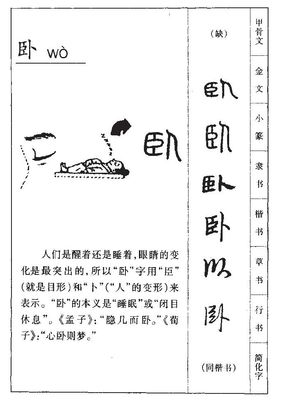 卧 wò
臥
人们是醒着还是睡着，眼睛的变
化是最突出的，所以“卧”字用“臣”
（就是目形）和“卜”（“人”的变形）来
表示。“卧”的本义是“睡眠”或“闭目
休息”。《孟子》：“隐几而卧。”《荀
子》：“心卧则梦。”
（缺）
臥
臥
卧
卧
卧
卧
（同楷书）
甲骨文
金文
小篆
隶书
楷书
草书
行书
简化字